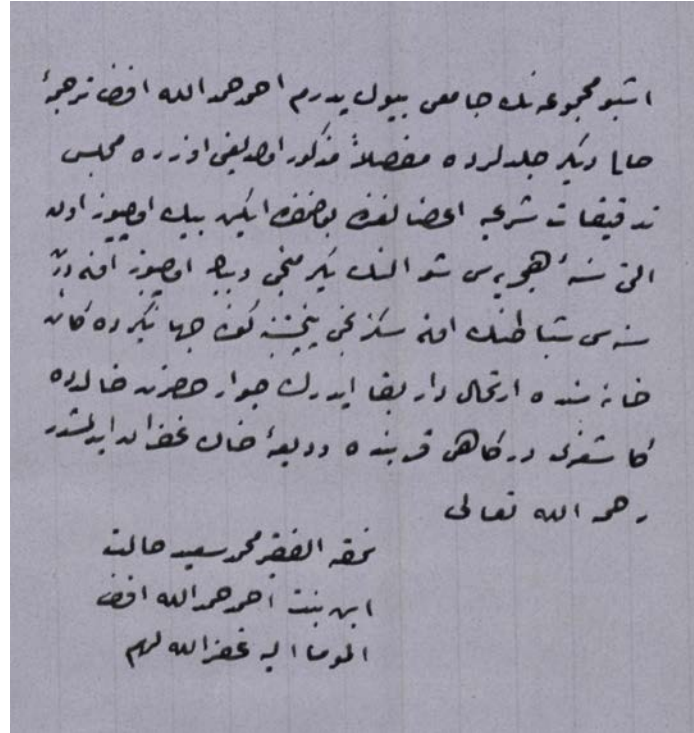 اشبو مجموعه نك جامعى بيوك پدرم احمد حمد الله افندى ترجمۀ
حالى ديكر جلدلرده مفصلاً مذكور اولديغى اوزره مجلس
تدقيقات شرعيه اعضالغنده بولنمقده ايكن بيك اوچيوز اون
التى سنۀ هجريه سى شوالنك يكرمنجى وبيك اوچيوز اون درت
سنه سى شباطنك اون سكزنجى پنجشنبه كونى جهانكيرده كائن
خانه سنده ارتحال دار بقا ايدرك جوار حضرت خالدده
كاشغرى دركاهى قربنده وديعۀ خاك غفران ايدلمشدر
رحمه الله تعالى
نمقه الفقير محمد سعيد حالت
ابن بنت احمد حمد الله افندى
المومى اليه غفر الله لهم